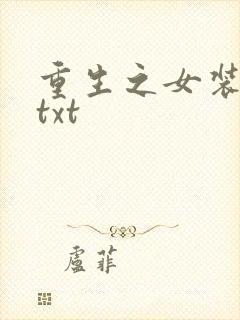 重生之女装
txt
盧菲